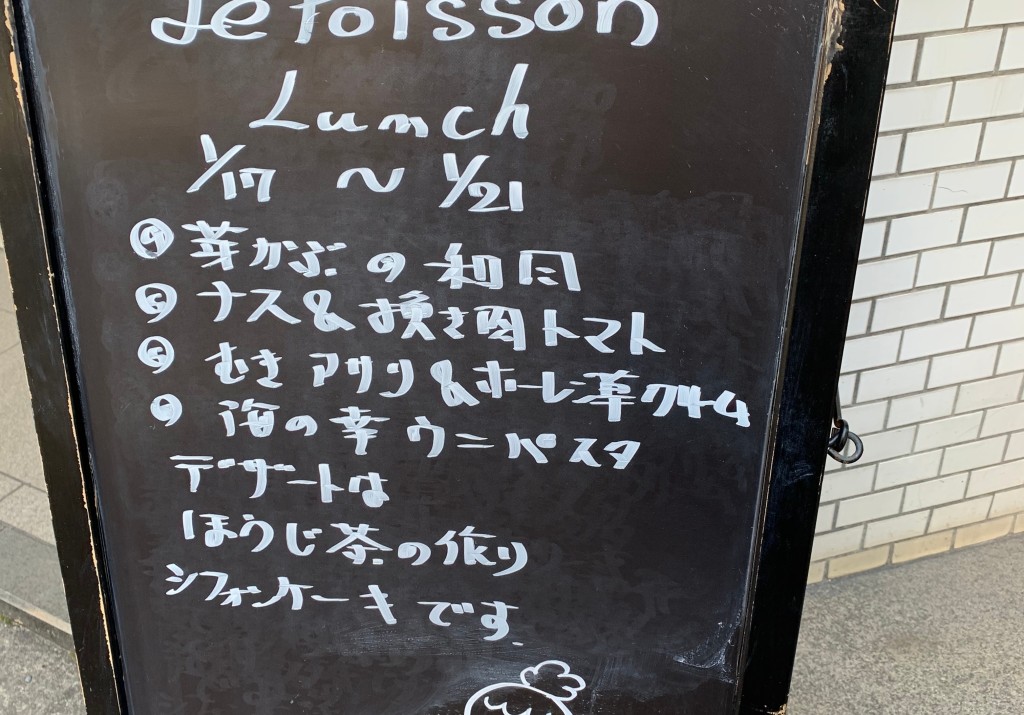 Poisson
Lunch
1/17 〜 1/21
芽かぶの和風
ナス&お挽き肉トマト
むきアサリ&ホーレン草クリーム
海の幸ウニパスタ
デザートは
ほうじ茶の作り
シフォンケーキです.